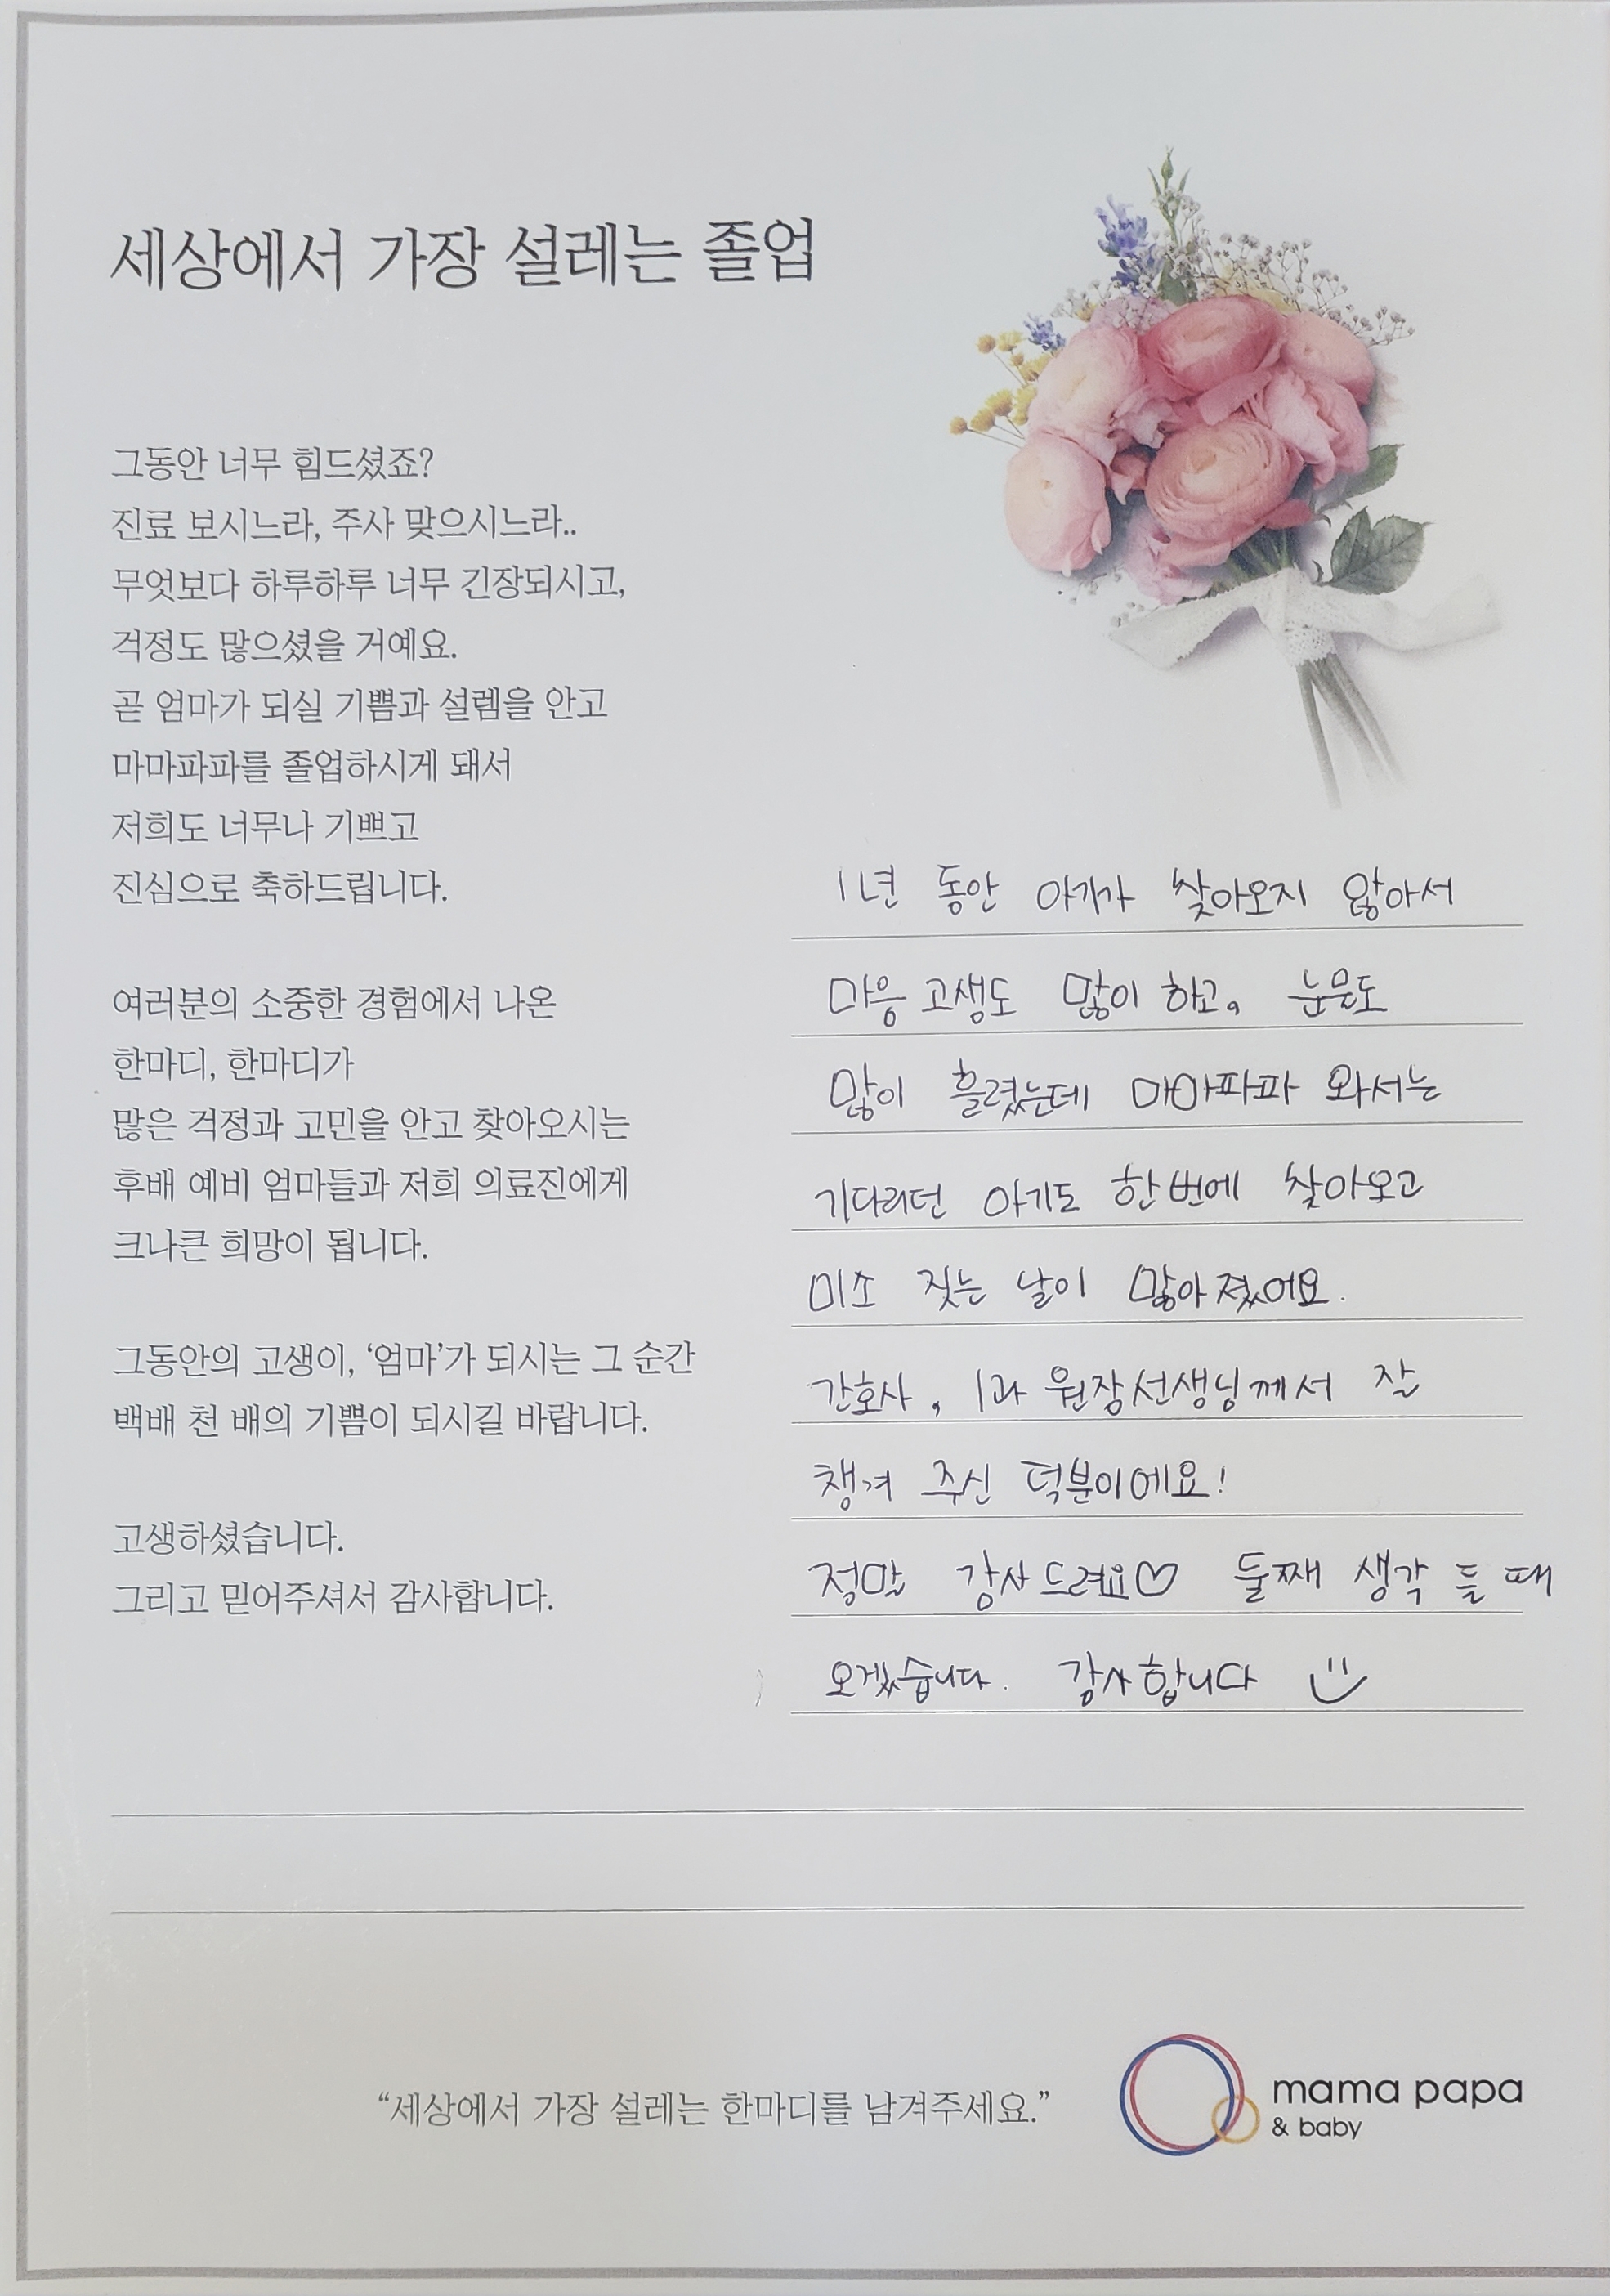 세상에서 가장 설레는 졸업
그동안 너무 힘드셨죠?
진료 보시느라, 주사 맞으시느라..
무엇보다 하루하루 너무 긴장되시고,
걱정도 많으셨을 거예요.
곧 엄마가 되실 기쁨과 설렘을 안고
마마파파를 졸업하시게 돼서
저희도 너무나 기쁘고
진심으로 축하드립니다.
여러분의 소중한 경험에서 나온
한마디, 한마디가
많은 걱정과 고민을 안고 찾아오시는
후배 예비 엄마들과 저희 의료진에게
크나큰 희망이 됩니다.
그동안의 고생이, ‘엄마’가 되시는 그 순간
백배 천 배의 기쁨이 되시길 바랍니다.
고생하셨습니다.
그리고 믿어주셔서 감사합니다.
1년 동안 아기가 찾아오지 않아서
마음 고생도 많이 하고, 눈물도
많이 흘렸는데 마마파파 와서는
기다리던 아기도 한번에 찾아오고
미소 짓는 날이 많아졌어요.
간호사, 1과 원장선생님께서 잘
챙겨 주신 덕분이에요!
정말 감사드려요♡ 둘째 생각 들 때
오겠습니다. 감사합니다
“세상에서 가장 설레는 한마디를 남겨주세요.”
mama papa
& baby